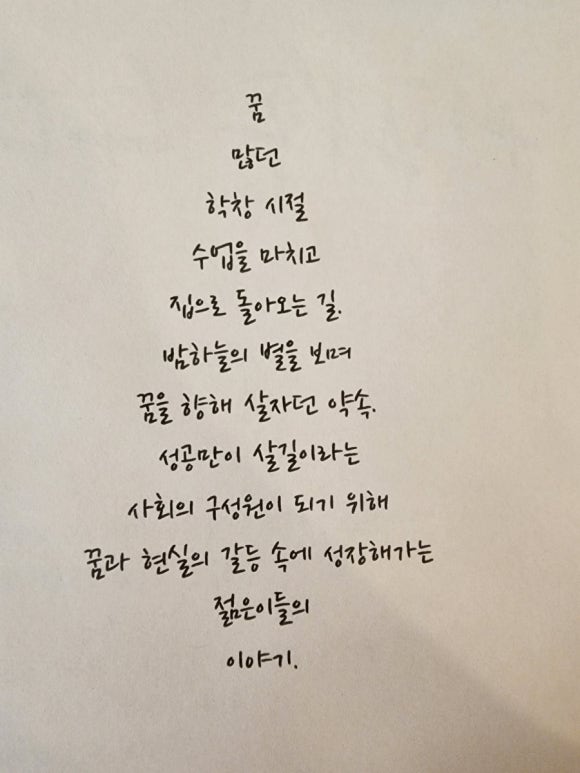 꿈
많던
학창 시절
수업을 마치고
집으로 돌아오는 길.
밤하늘의 별을 보며
꿈을 향해 살자던 약속.
성공만이 살길이라는
사회의 구성원이 되기 위해
꿈과 현실의 갈등 속에 성장해가는
젊은이들의
이야기.